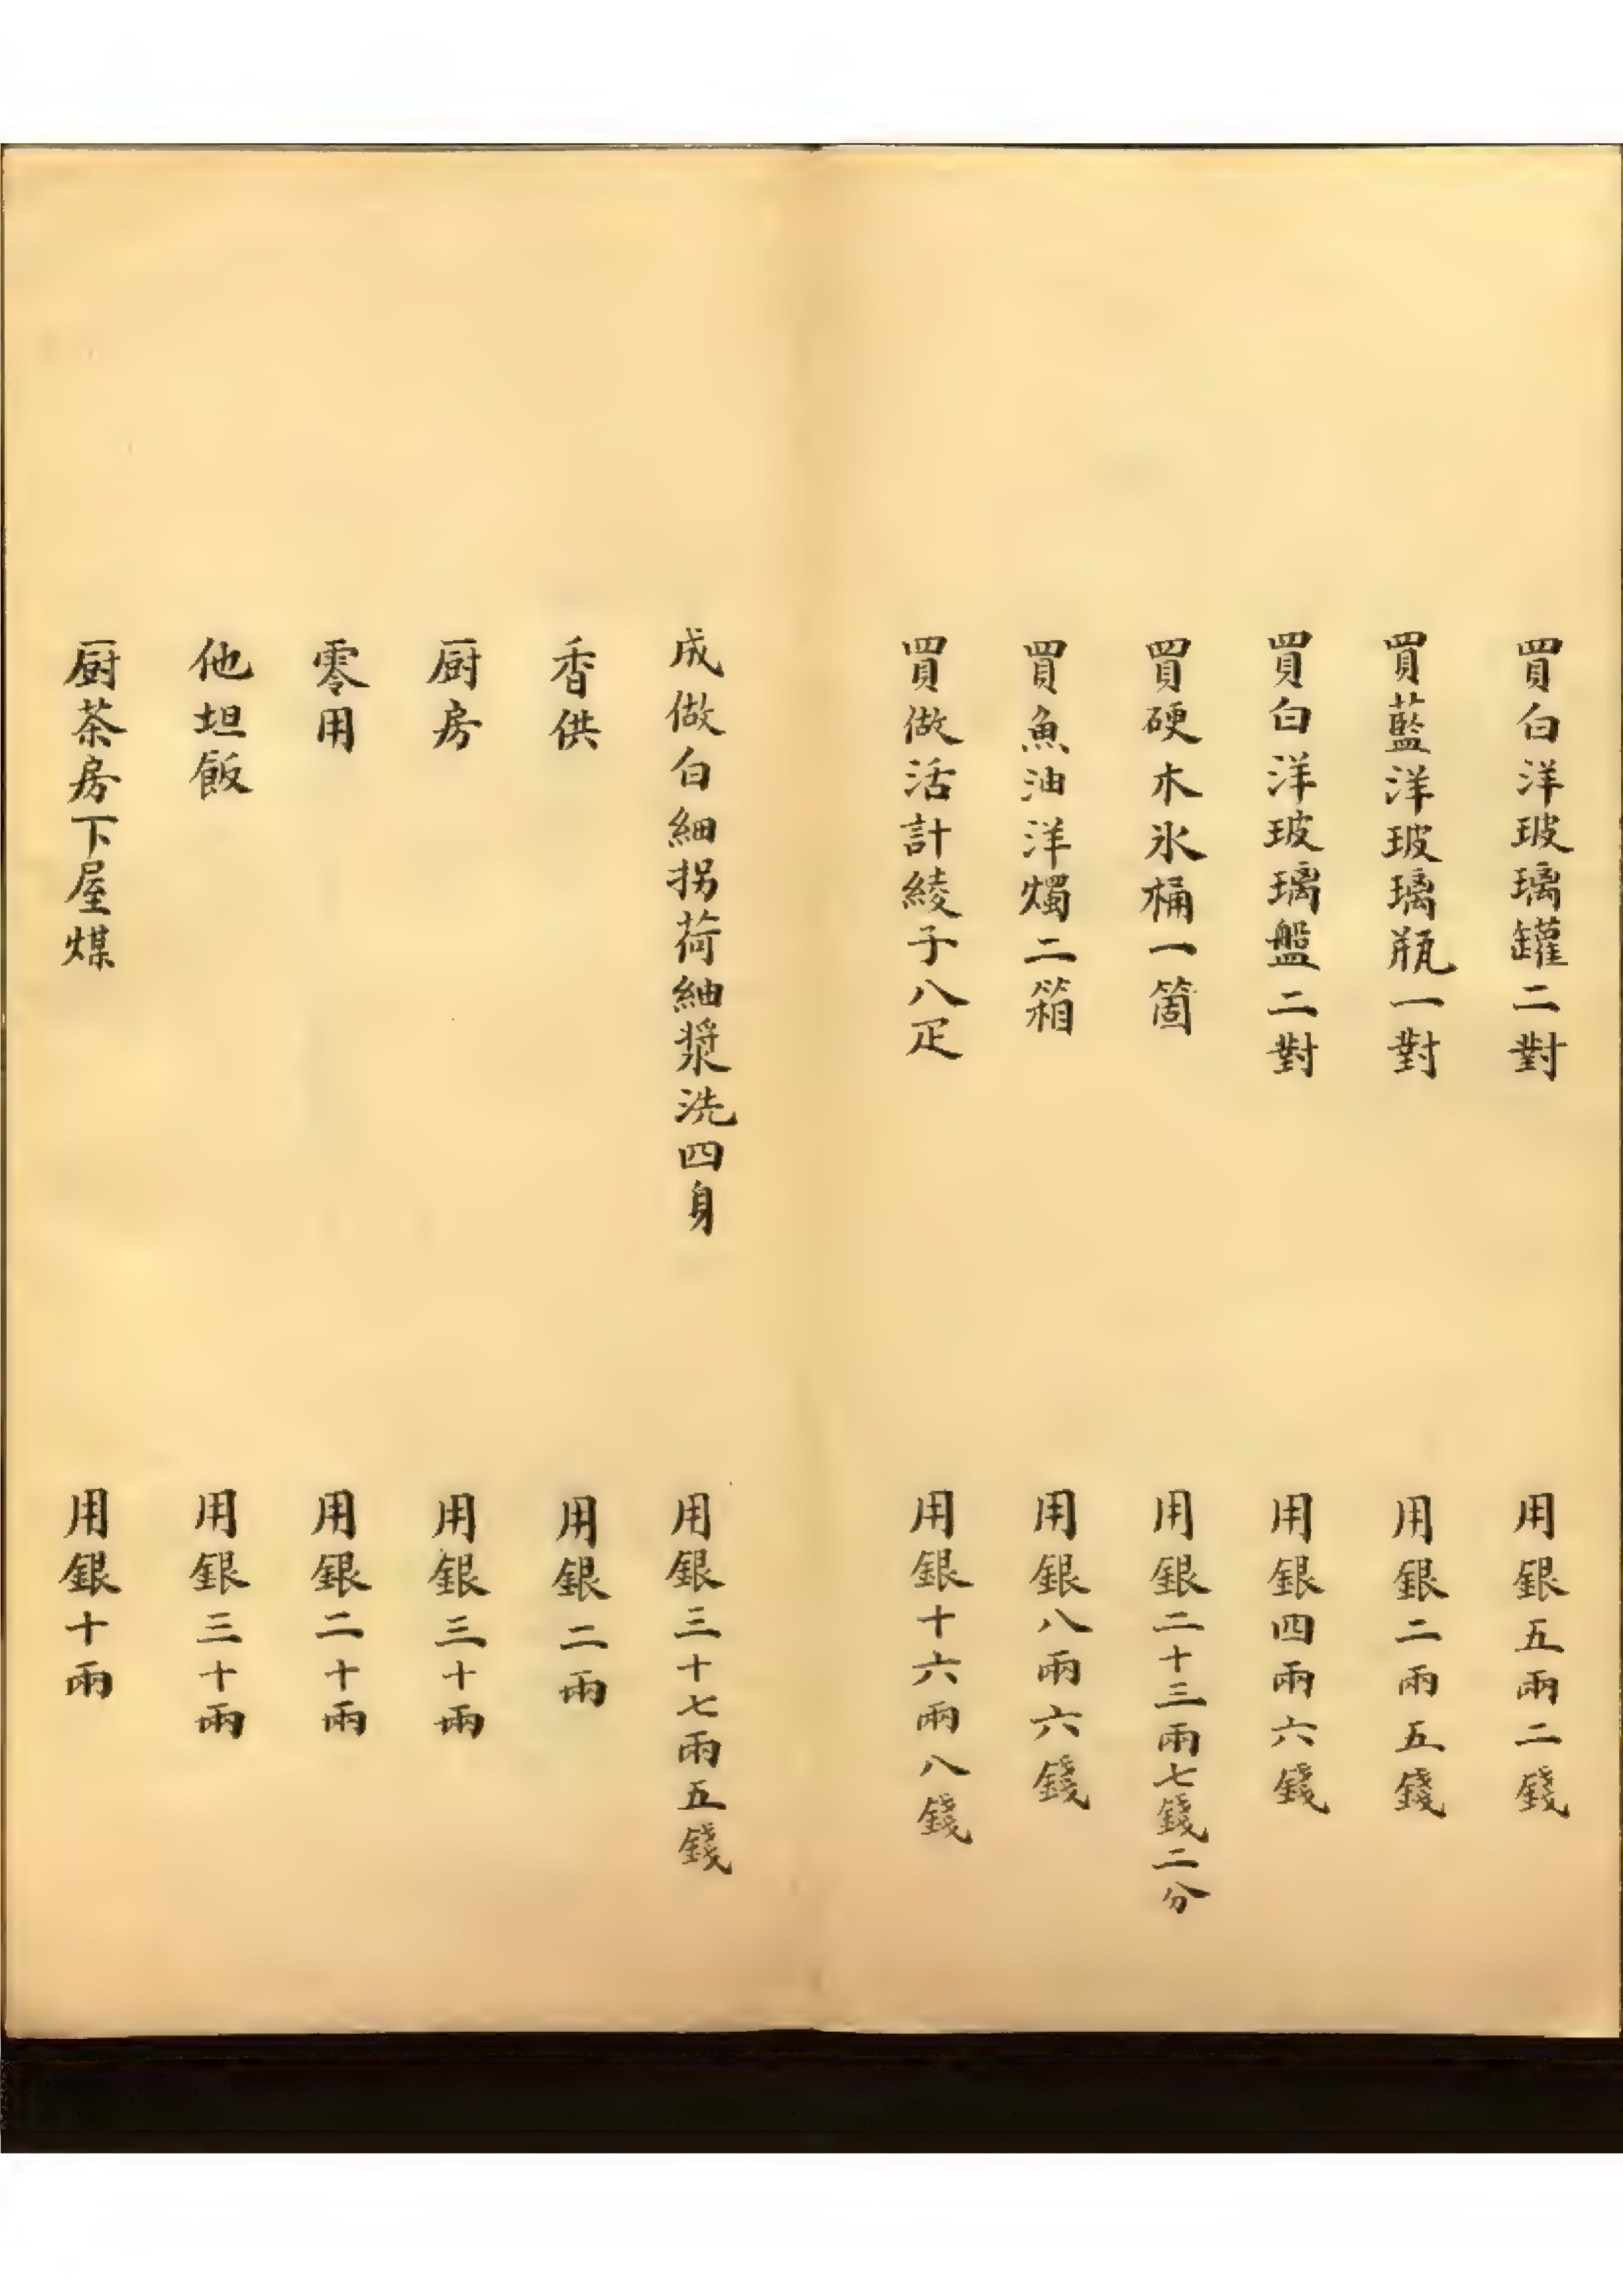 買白洋玻璃罐二對 用銀五兩二錢
買藍洋玻璃瓶一對 用銀二兩五錢
買白洋玻璃盤二對 用銀四兩六錢
買硬木氷桶一箇 用銀二十三兩七錢二分
買魚油洋燭二箱 用銀八兩六錢
買做活計綾子八疋 用銀十六兩八錢
成做白細拐荷紬漿洗四身 用銀三十七兩五錢
香供 用銀二兩
厨房 用銀三十兩
零用 用銀二十兩
他坦飯 用銀三十兩
厨茶房下屋煤 用銀十兩